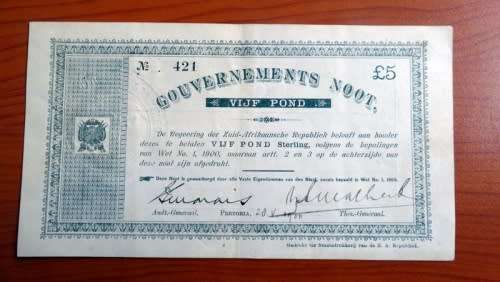 № 421
GOUVERNEMENTS NOOT,
£5
VIJF POND
De Regeering der Zuid-Afrikaansche Republiek belooft aan houder
dezes te betalen VIJF POND Sterling, volgens de bepalingen
van Wet No. 1, 1900, waarvan artt. 2 en 3 op de achterzijde van
deze noot zijn afgedrukt.
Deze Noot is gewaarborgd door alle Vaste Eigendommen van den Staat, zooals bepaald in Wet No. 1, 1900.
Audt.-Generaal.
PRETORIA,
Thes.-Generaal.
Gedrukt ter Staatsdrukkerij van de Z. A. Republiek.